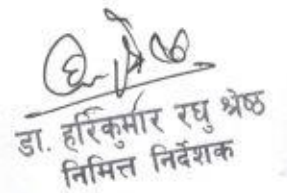 डा. हरिकुमार रघु श्रेष्ठ
निमित्त निर्देशक